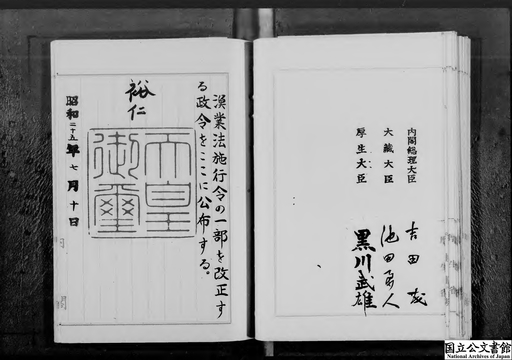 内閣総理大臣 吉田茂
大藏大臣 池田勇人
厚生大臣 黒川武雄
漁業法施行令の一部を改正す
る政令をここに公布する。
裕仁
天皇
御璽
昭和二十五年七月十日
国立公文書館
National Archives of Japan